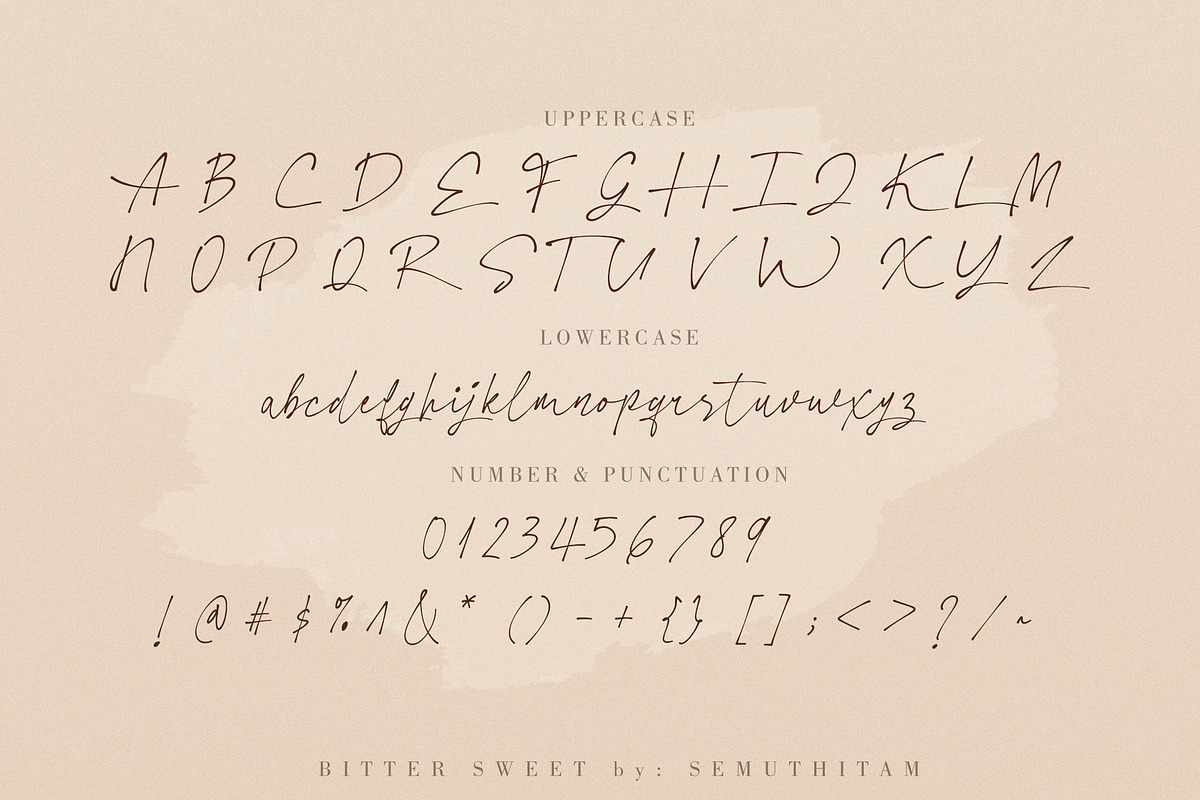 UPPERCASE
A B C D E F G H I J K L M
N O P Q R S T U V W X Y Z
LOWERCASE
abcdefghijklmnopqrstuvwxyz
NUMBER & PUNCTUATION
0123456789
! @ # $ % ^ & * () - + {} [] ; < > ? / ~
BITTER SWEET by: SEMUTHITAM